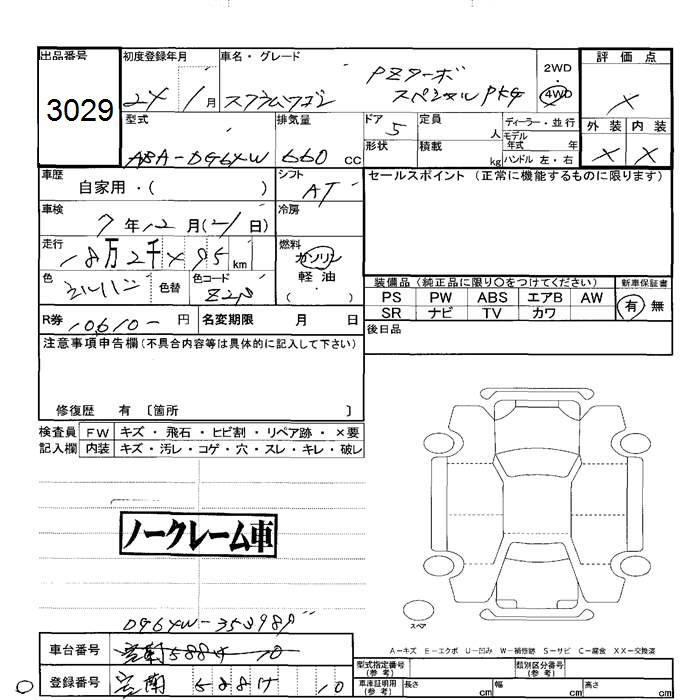 出品番号 初度登録年月 車名・グレード 2WD・4WD 評価点
3029 24 1月 スクラムワゴン PZターボ スペシャルPKG ×
型式 排気量 ドア 5 定員 人 ディーラー・並行 外装 内装
ABA-DG64W 660 cc 形状 積載 kg モデル年式 年 ハンドル 左・右 × ×
車歴 自家用・( ) シフト AT セールスポイント (正常に機能するものに限ります)
車検 7年12月(21日) 冷房
走行 18万2千495km 燃料 ガソリン 軽油 ( )
色 シルバー 色替 色コード Z2P
装備品 (純正品に限り○をつけてください) 新車保証書
PS PW ABS エアB AW 有 無
SR ナビ TV カワ
R券 10610- 円 名変期限 月 日 後日品
注意事項申告欄 (不具合内容等は具体的に記入して下さい)
修復歴 有 〔箇所 〕
検査員 FW キズ・飛石・ヒビ割・リペア跡・×要
記入欄 内装 キズ・汚レ・コゲ・穴・スレ・キレ・破レ
ノークレーム車
スペア
A-キズ E-エクボ U-凹み W-補修跡 S-サビ C-腐食 XX-交換済
車台番号 DG64W-353989
型式指定番号 (参考) 類別区分番号 (参考)
登録番号
車庫証明用 (参考) 長さ cm 幅 cm 高さ cm